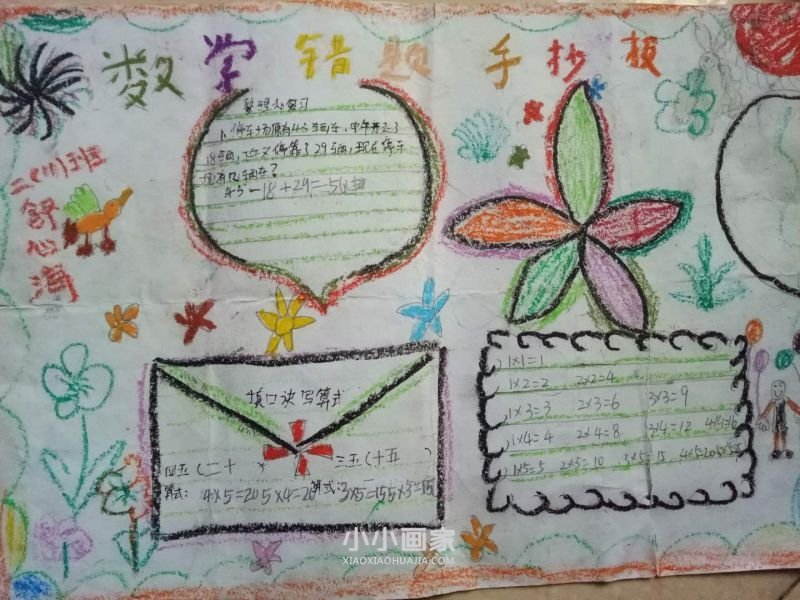 数学错题手抄报
二(1)班
舒心海
整理和复习
1、停车场原有45辆车，中午开走了
18辆，下午又停靠了29辆，现在停车
45-18+29=56辆
填口诀写算式
四五(二十 ) 三五(十五 )
算式: 4×5=20 5×4=20 算式: 3×5=15 5×3=15
1×1=1
1×2=2 2×2=4
1×3=3 2×3=6 3×3=9
1×4=4 2×4=8 3×4=12 4×4=16
1×5=5 2×5=10 3×5=15 4×5=20
小小画家
XIAOXIAOHUAJIA.COM